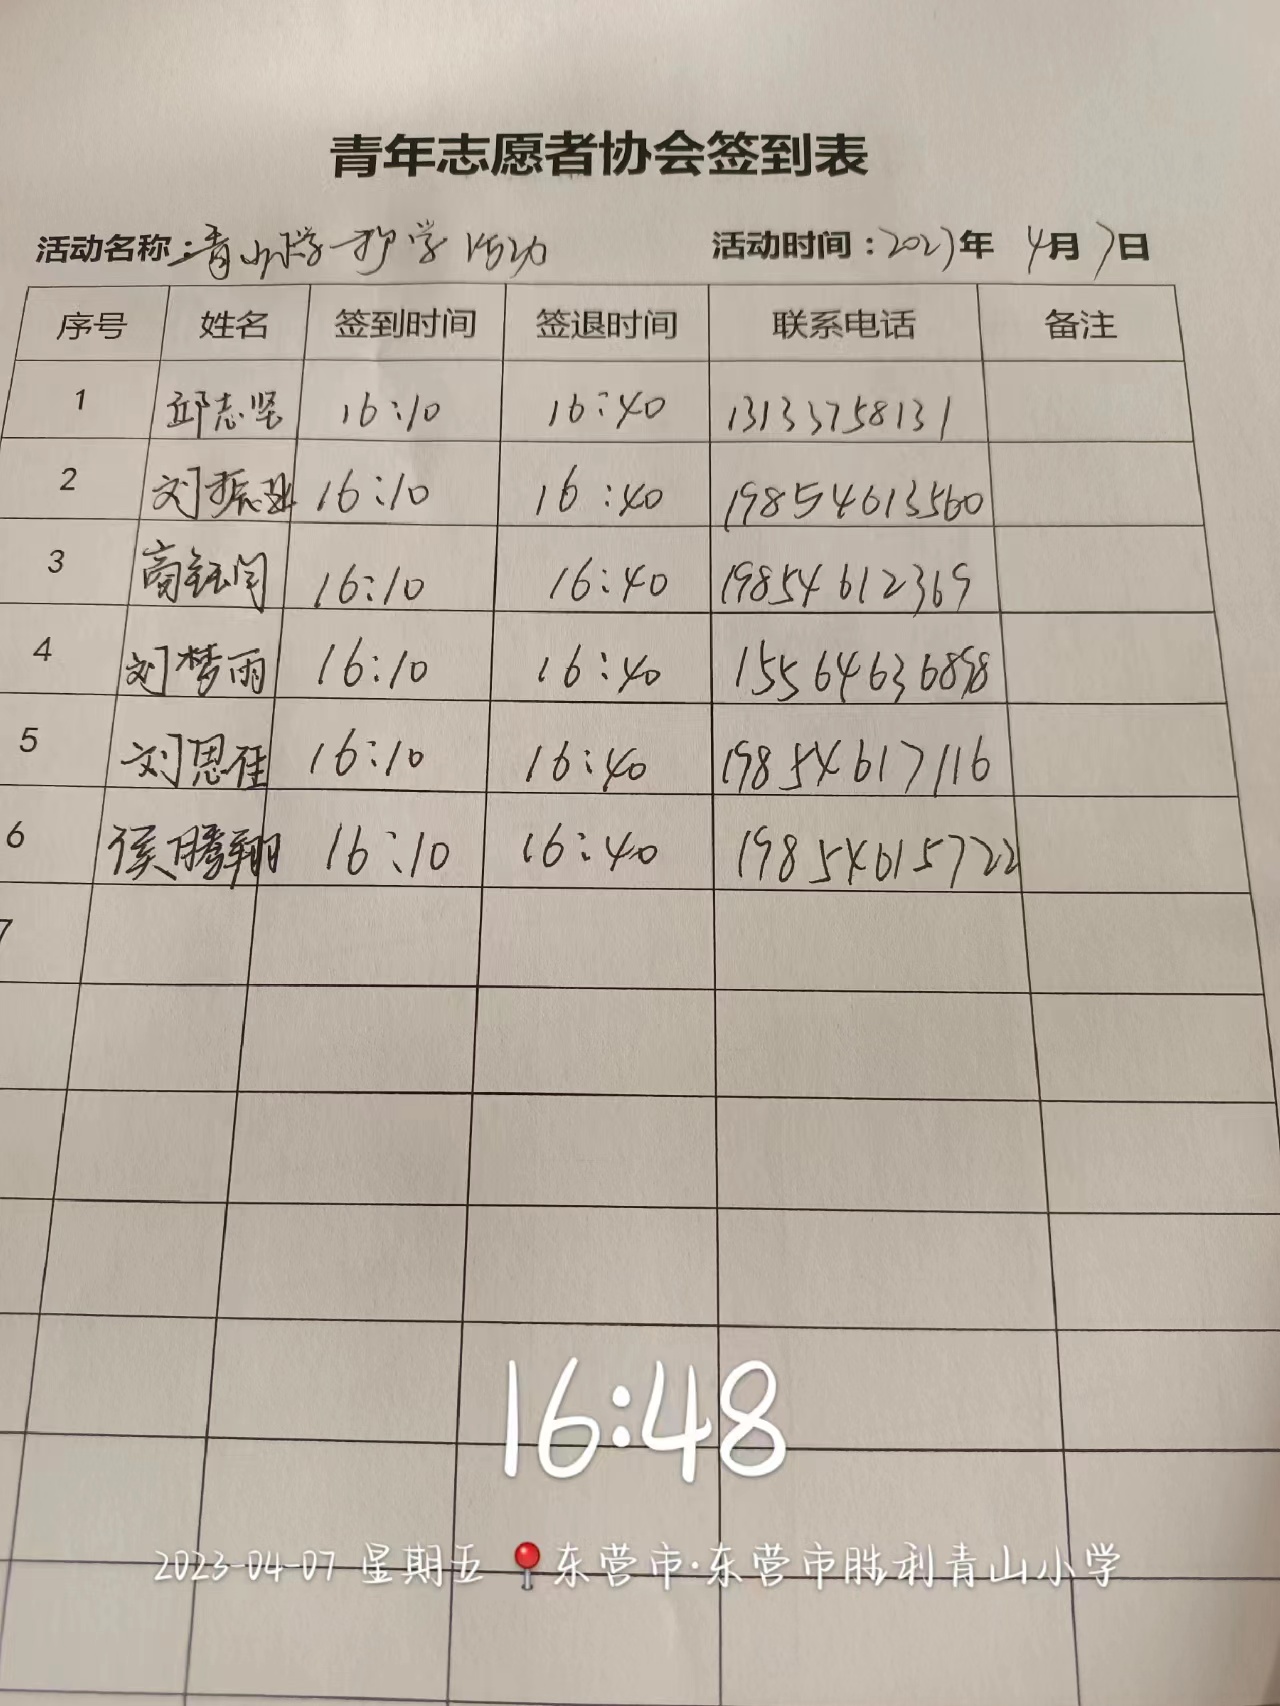 青年志愿者协会签到表
活动名称：青山小学护学活动 活动时间：2023年 4月 7日
序号 姓名 签到时间 签退时间 联系电话 备注
1 邱志坚 16:10 16:40 13133758131
2 刘振 16:10 16:40 19854613560
3 商钰闫 16:10 16:40 19854612369
4 刘梦雨 16:10 16:40 15564636898
5 刘恩佳 16:10 16:40 19854617116
6 侯腾翔 16:10 16:40 19854615722
7
16:48
2023-04-07 星期五 东营市·东营市胜利青山小学